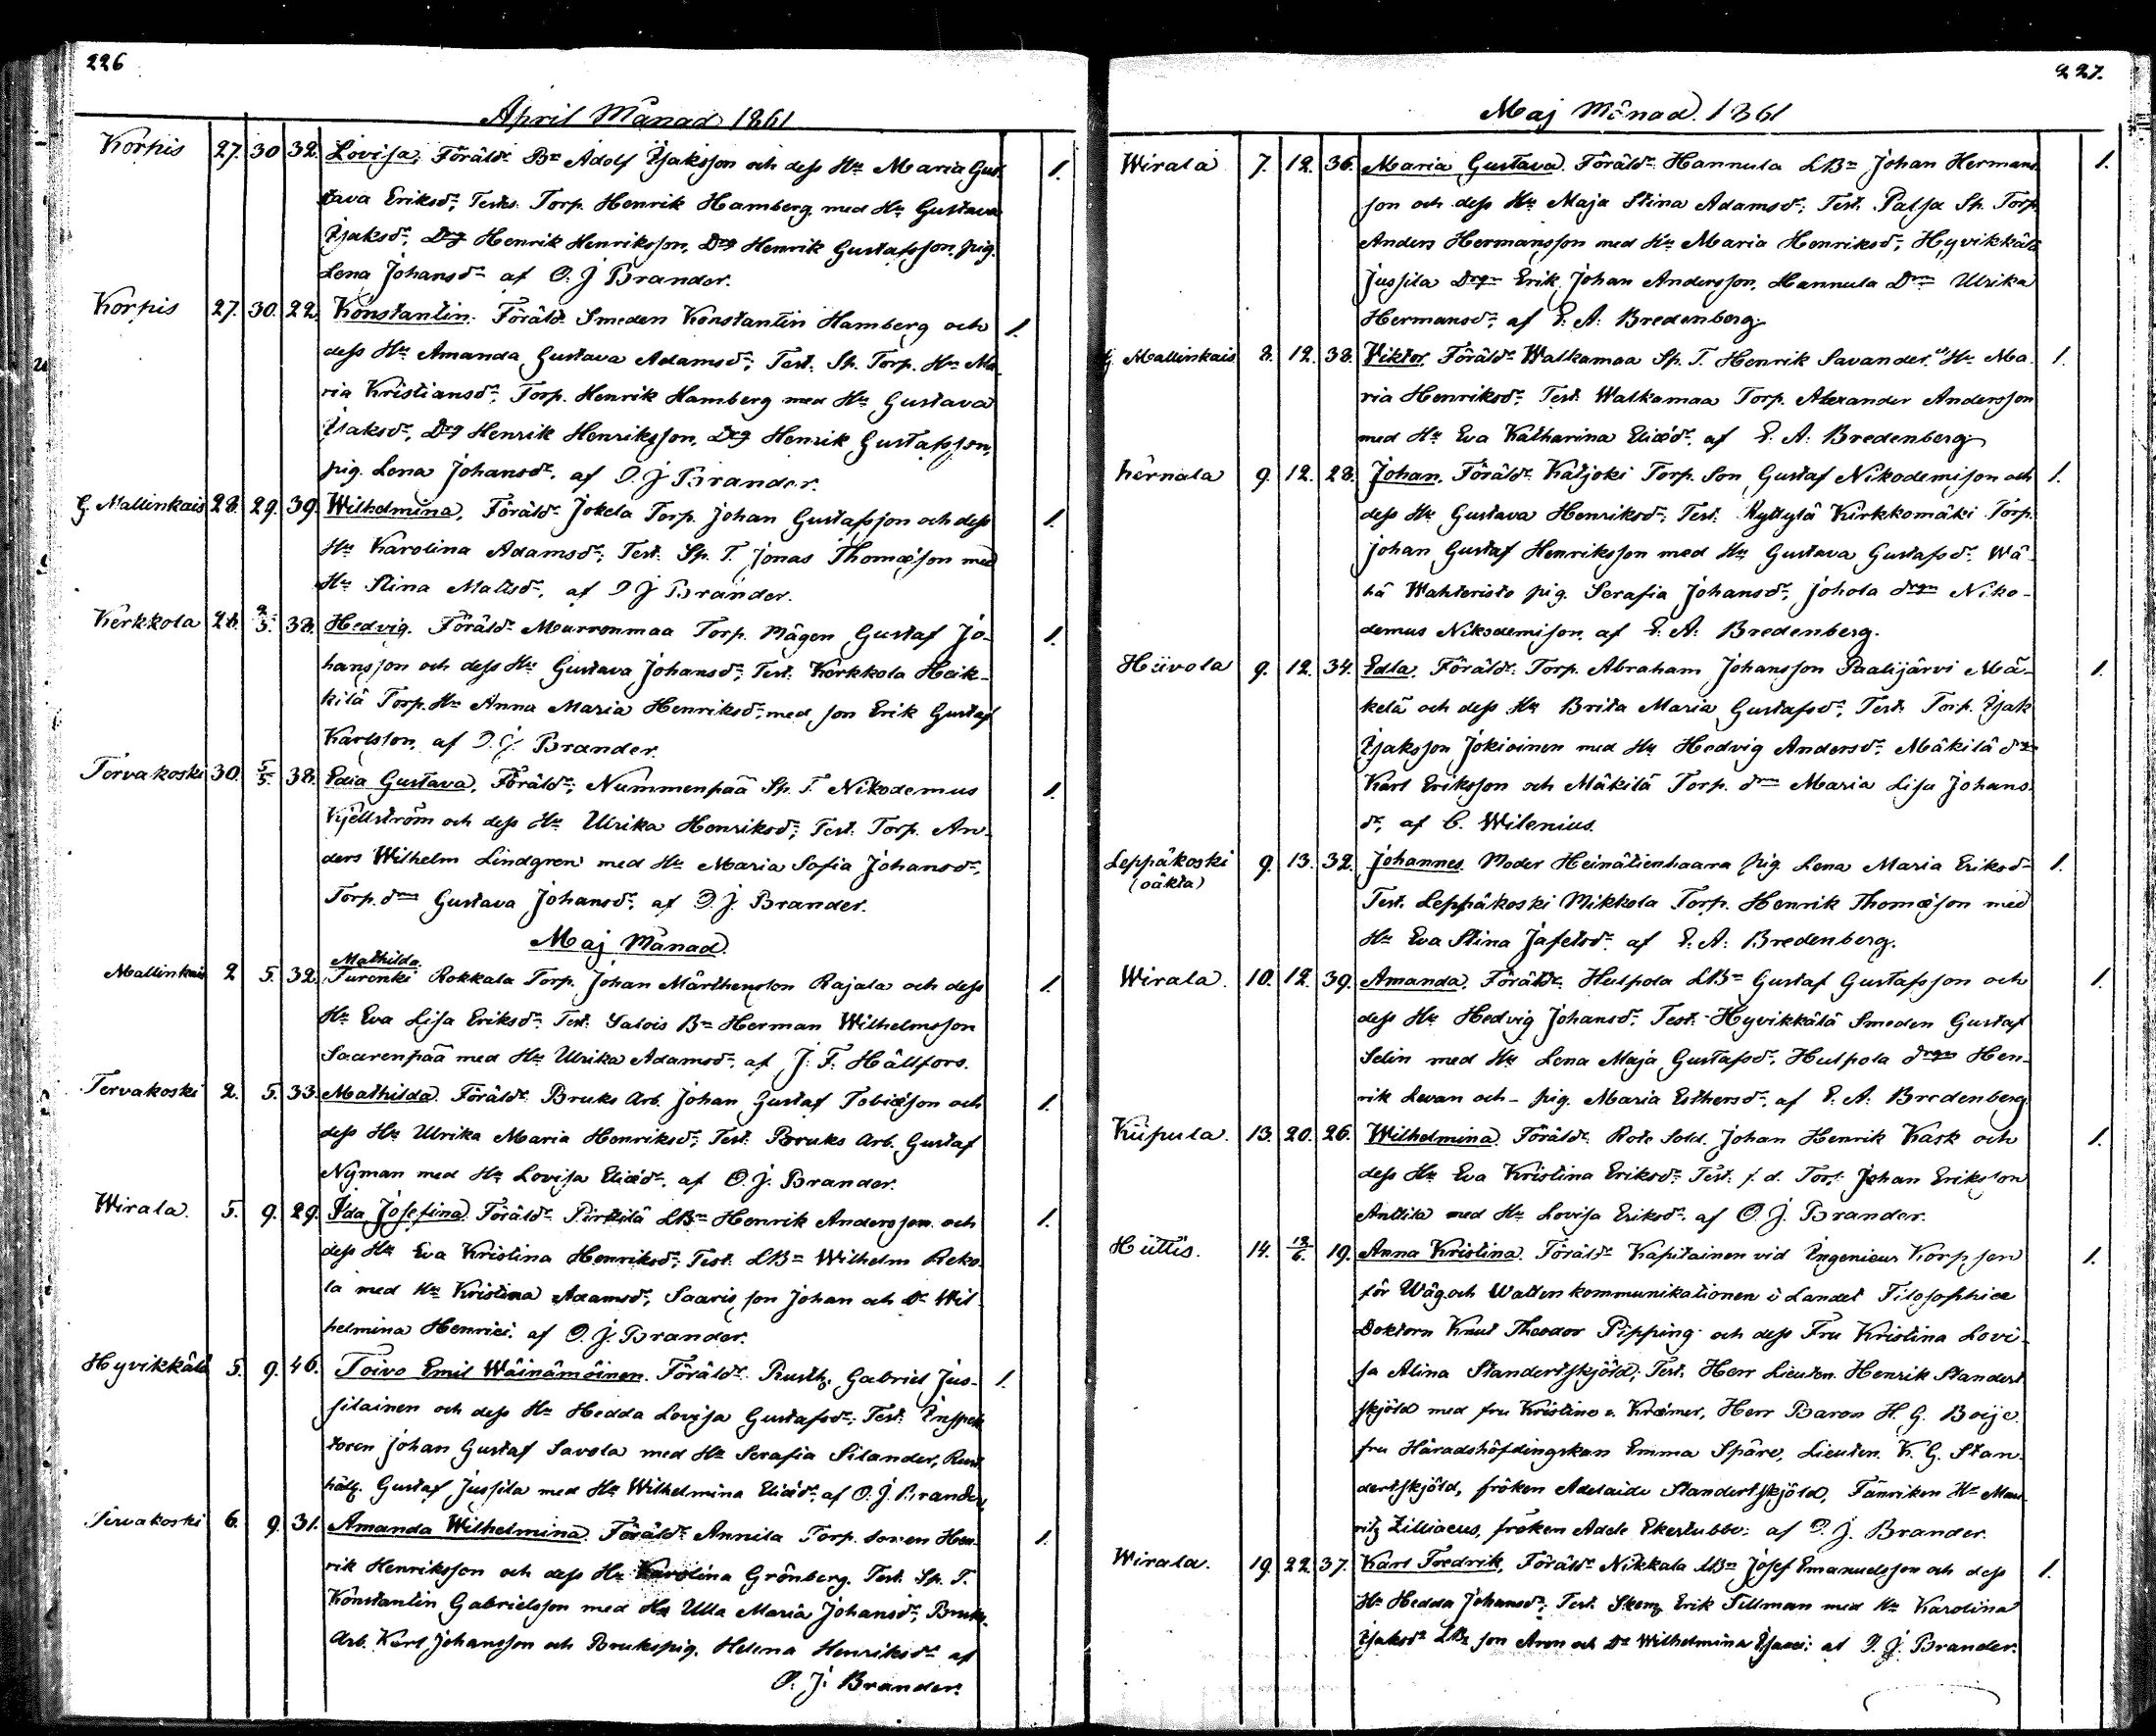 226
April Månad 1861
Korpis 27. 30 32. Lovisa, Föräldr. Bn Adolf Isaksson och dess Hu Maria Gus- 1.
tava Eriksdr, Test. Torp. Henrik Hamberg med Hu Gustava
Isaksdr, Drg Henrik Henriksson, Drg Henrik Gustafsson, pig.
Lena Johansdr af O. J Brander.
Korpis 27. 30. 22. Konstantin. Föräld. Smeden Konstantin Hamberg och 1.
dess Hu Amanda Gustava Adamsdr; Test. Sp. Torp. Hu Ma-
ria Kristiansdr, Torp. Henrik Hamberg med Hu Gustava
Isaksdr, Drg Henrik Henriksson, Drg Henrik Gustafsson,
pig. Lena Johansdr, af O. J Brander.
G. Mallinkais 28. 29. 39. Wilhelmina, Föräldr Jokela Torp. Johan Gustafsson och dess 1.
Hu Karolina Adamsdr; Test. Sp. T. Jonas Thomæson med
Hu Stina Mattsdr, af O J Brander.
Kerkkola 28. 2/5. 38. Hedvig. Föräldr Murronmaa Torp. mågen Gustaf Jo- 1.
hansson och dess Hu Gustava Johansdr; Test. Kerkkola Heik-
kilä Torp. Hu Anna Maria Henriksdr, med son Erik Gustaf
Karlsson, af O. J. Brander.
Tervakoski 30. 5/5. 38. Edia Gustava, Föräldr; Nummenpää Sp. T. Nikodemus 1.
Kjellström och dess Hu Ulrika Henriksdr; Test. Torp. An-
ders Wilhelm Lindgren med Hu Maria Sofia Johansdr,
Torp. dr Gustava Johansdr, af O. J. Brander.
Maj Månad.
Mathilda.
Mallinkais 2 5. 32. Turonki Rokkala Torp. Johan Mårthensson Rajala och dess 1.
Hu Eva Lisa Eriksdr. Test. Salois Bn Herman Wilhelmsson
Saarenpää med Hu Ulrika Adamsdr, af J. F. Hällfors.
Tervakoski 2. 5. 33. Mathilda. Föräldr. Bruks Arb. Johan Gustaf Tobiæson och 1.
dess Hu Ulrika Maria Henriksdr; Test. Bruks Arb. Gustaf
Nyman med Hu Lovisa Eliædr, af O. J. Brander.
Wirala. 5. 9. 29. Ida Josefina. Föräldr Pirttilä LBn Henrik Andersson och 1.
dess Hu Eva Kristina Henriksdr; Test. LBn Wilhelm Reko-
la med Hu Kristina Adamsdr, Saaris son Johan och Dr Wil-
helmina Henrici, af O. J. Brander.
Hyvikkälä 5. 9. 46. Toivo Emil Wäinämöinen. Föräldr. Rusth. Gabriel Jus- 1.
silainen och dess Hu Hedda Lovisa Gustafsdr; Test. Inspek-
toren Johan Gustaf Savola med Hu Serafia Silander, Rust
håll. Gustaf Jussila med Hu Wilhelmina Eliædr, af O. J. Brander.
Tervakoski 6. 9. 31. Amanda Wilhelmina. Föräldr Annila Torp. sonen Hen- 1.
rik Henriksson och dess Hu Karolina Grönberg. Test. Sp. T.
Konstantin Gabrielsson med Hu Ulla Maria Johansdr, Bruks
Arb. Karl Johansson och Brukspig. Helena Henriksdr af
O. J. Brander.
227.
Maj Månad. 1861
Wirala 7. 12. 36. Maria Gustava. Föräldr. Hannula LBn Johan Hermans- 1.
son och dess Hu Maja Stina Adamsdr; Test. Palsa Sp. Torp.
Anders Hermansson med Hu Maria Henriksdr, Hyvikkälä
Jussila Drgn Erik Johan Andersson, Hannula Drn Ulrika
Hermansdr, af E. A. Bredenberg.
G. Mallinkais 8. 12. 38. Viktor. Föräldr Walkamaa Sp. T. Henrik Savander o Hu Ma- 1.
ria Henriksdr. Test. Walkamaa Torp. Alexander Andersson
med Hu Eva Katharina Eliædr, af E. A. Bredenberg.
hernala 9. 12. 28. Johan. Föräldr. Katjoki Torp. Son Gustaf Nikodemisson och 1.
dess Hu Gustava Henriksdr. Test. Ryttylä Kirkkomäki Torp.
Johan Gustaf Henriksson med Hu Gustava Gustafsdr. Wä-
hä Wahteristo pig. Serafia Johansdr, Johola drgn Niko-
demus Nikodemison, af E. A. Bredenberg.
Hiivola 9. 12. 34. Edla. Föräldr. Torp. Abraham Johansson Paalijärvi Mä- 1.
kelä och dess Hu Brita Maria Gustafsdr, Test. Torp. Isak
Isaksson Jokioinen med Hu Hedvig Andersdr, Mäkilä drg
Karl Eriksson och Mäkilä Torp. drn Maria Lisa Johans-
dr, af C. Wilenius.
Leppäkoski 9. 13. 32. Johannes. Moder Heinätienhaara pig. Lena Maria Eriksdr 1.
(oäkta)
Test. Leppäkoski Mikkola Torp. Henrik Thomæson med
Hu Eva Stina Jafetsdr, af E. A. Bredenberg.
Wirala. 10. 12. 39. Amanda. Föräldr. Hulpola LBn Gustaf Gustafsson och 1.
dess Hu Hedvig Johansdr. Test. Hyvikkälä Smeden Gustaf
Selin med Hu Lena Maja Gustafsdr, Hulpola drgn Hen-
rik Levan och pig. Maria Esthersdr, af E. A. Bredenberg.
Kiipula. 13. 20. 26. Wilhelmina. Föräldr. Rote Sold. Johan Henrik Kask och 1.
dess Hu Eva Kristina Eriksdr. Test. f. d. Torp. Johan Eriksson
Anttila med Hu Lovisa Eriksdr. af O. J. Brander.
Hiittis. 14. 13/6. 19. Anna Kristina. Föräldr Kapitainen vid Ingenieur Korpsen 1.
för Wäg och Watten kommunikationen i Landet Filosophiæ
Doktorn Knut Theodor Pipping och dess Fru Kristina Lovi-
sa Alina Standertskjöld; Test. Herr Lieuten. Henrik Standert-
skjöld med fru Kristine v. Kræmer, Herr Baron H. G. Boije,
fru Häradshöfdingskan Emma Spåre, Lieuten. K. G. Stan-
dertskjöld, fröken Adelaide Standertskjöld, Fänriken Hr Mau-
ritz Zilliacus, fröken Adele Ekestubbe: af O. J. Brander.
Wirala. 19. 22. 37. Karl Fredrik, Föräldr Nikkala LBn Josef Emanuelsson och dess 1.
Hu Hedda Johansdr; Test. Erik Tillman med Hu Karolina
Isaksdr LBs son Aron och Dr Wilhelmina Isaaci: af O. J. Brander.